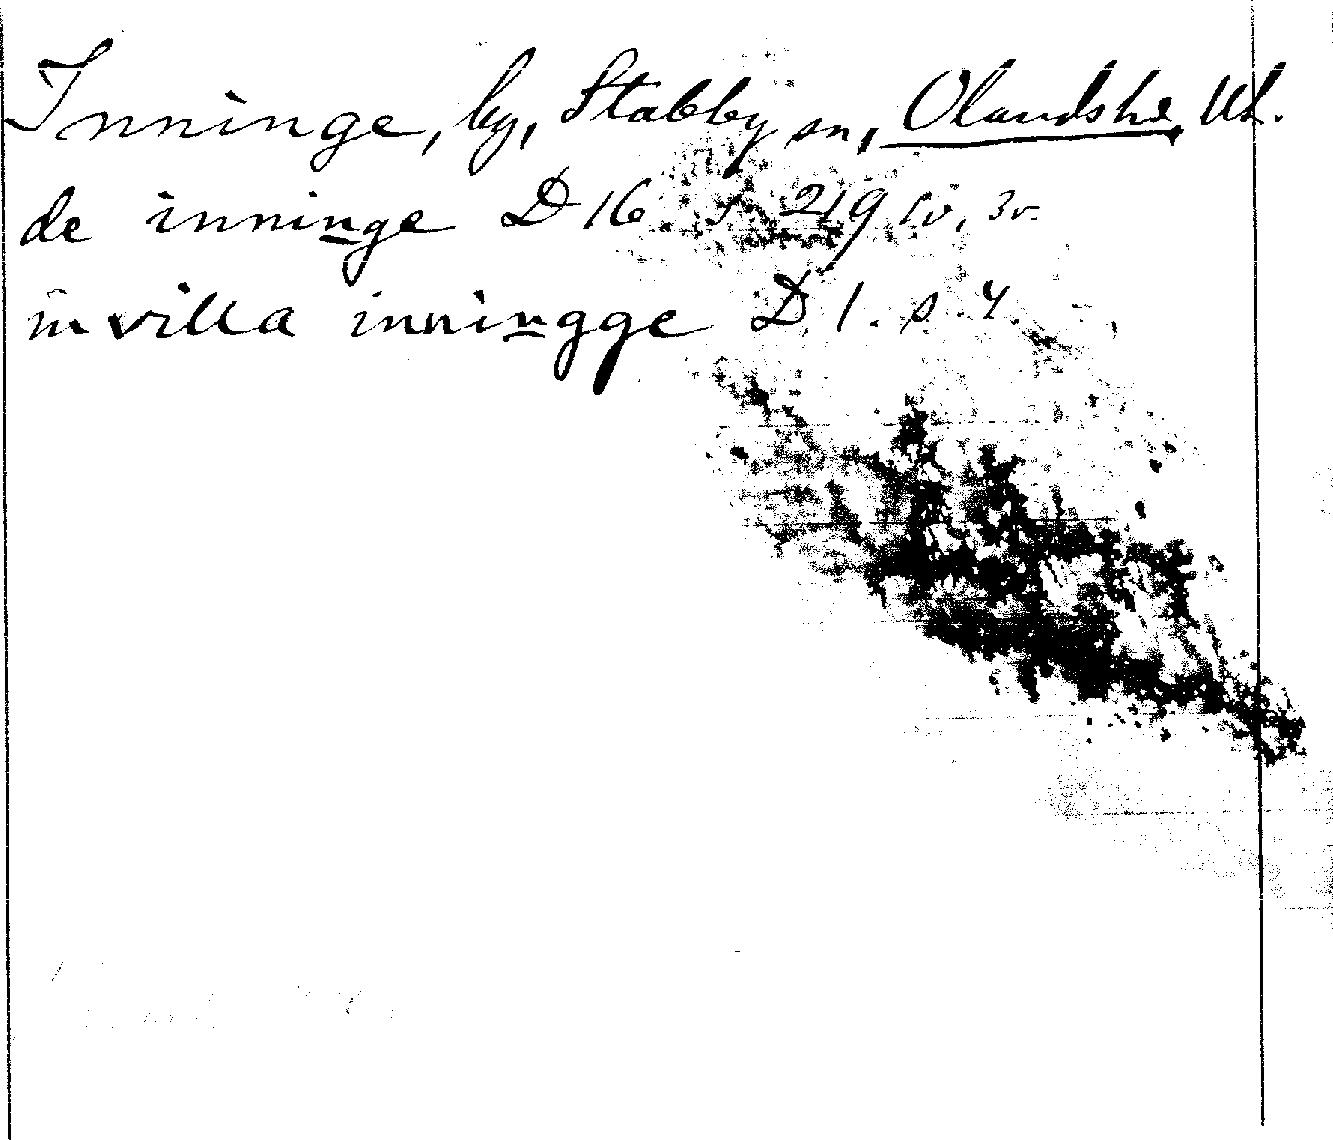 Inninge, by, Stabby sn, Olandshd, Ul.
de inninge D 16 s 219 
in villa inningge D 1. s. 4.